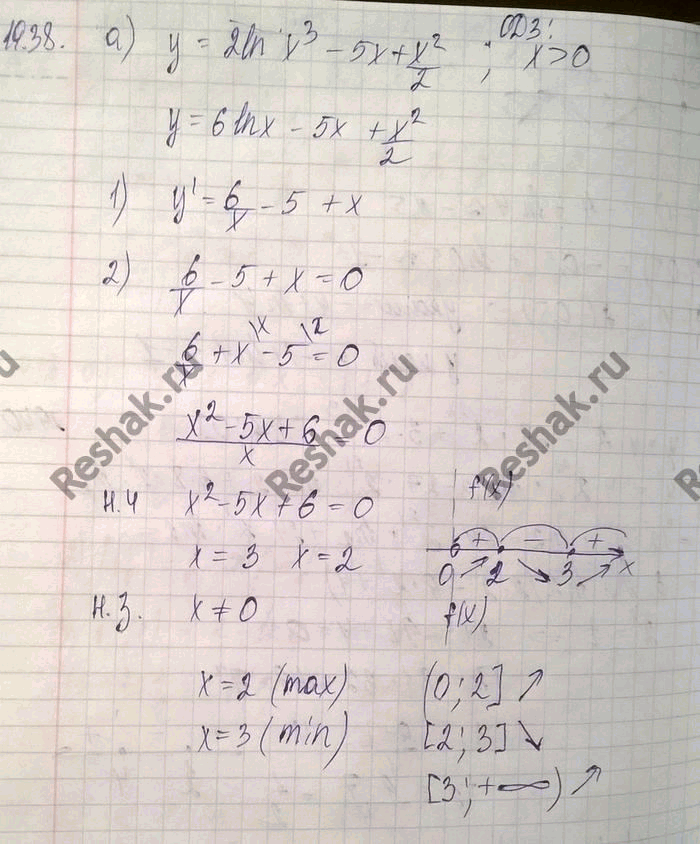 19.38. а) y = 2ln x³ - 5x + x²/2 ; ОДЗ: x>0
y = 6lnx - 5x + x²/2
1) y' = 6/x - 5 + x
2) 6/x - 5 + x = 0
6/x + x\x - 5\x = 0
(x² - 5x + 6)/x = 0
н.ч x² - 5x + 6 = 0
f'(x)
+ - +
x = 3 x = 2
0 ↗ 2 ↘ 3 ↗ x
н.з. x ≠ 0
f(x)
x = 2 (max) (0; 2] ↗
x = 3 (min) [2; 3] ↘
[3; +∞) ↗
Reshak.ru
Reshak.ru
Reshak.ru